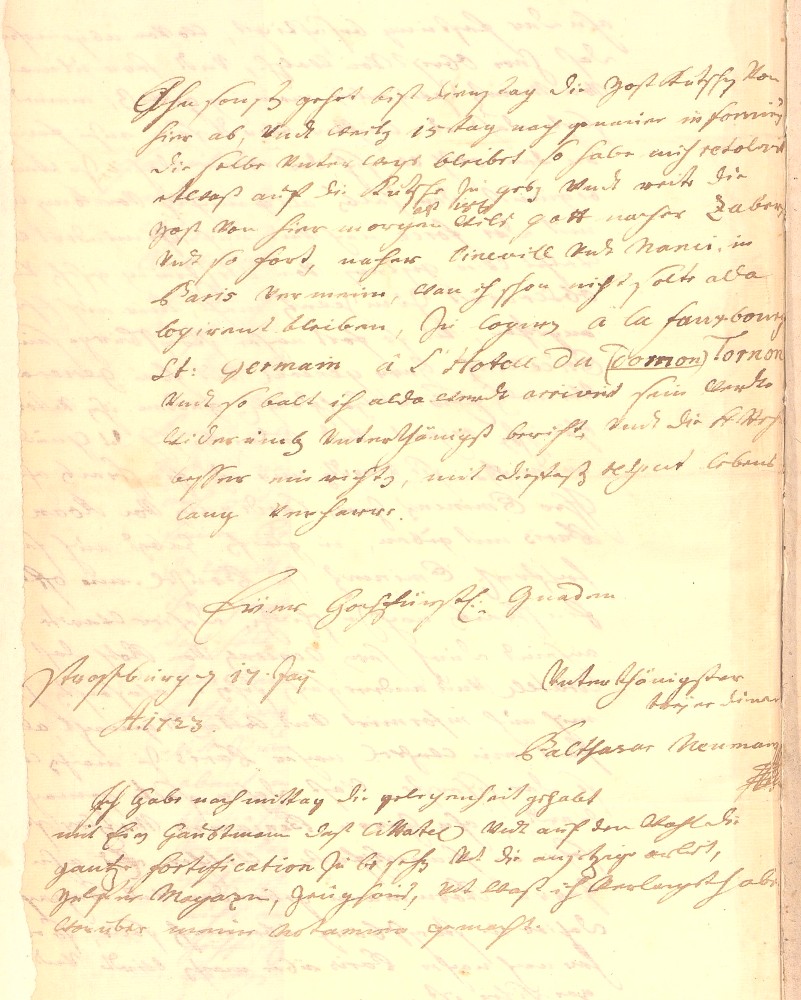 Ohn sonst gehet bist dienstag die post Kutschen Von
hier ab, Undt weilen 15 tag nach genauer informirung
die selbe Unter wegs bleibet so habe mich resolvirt
etwas auf die Kutsche zu geben Undt reite die
post Von hier morgen wils gott nacher Zabern
Undt so fort, nacher Linevill Undt Nanci, in
Paris Vermeine, wan ich schon nicht solte alda
logirent bleiben, zu logiren â la fauxbourg
St: germain â l'Hotell du (Tornon) Tornon
Undt so balt ich alda werde arrivirt sein werde
widerumb Unterthänigst berichten Undt die
besser einrichten, mit diefesten respect lebens
lang Verharre.
Eüer Hochfürstl: Gnaden
Strassburg 17
A. 1723.
Unterthänigster
treyer diener
Balthasar Neumann
Ich habe nachmittag die gelegenheit gehabt
mit Ein Haubtmann das Cittatel Undt auf den Wahl die
gantze fortification zu besehen Ut die anjetzige arbeit,
Pulfer Magazin, Zeüghaus, Ut was ich verlangt habe
worüber meine Notamina gemacht.